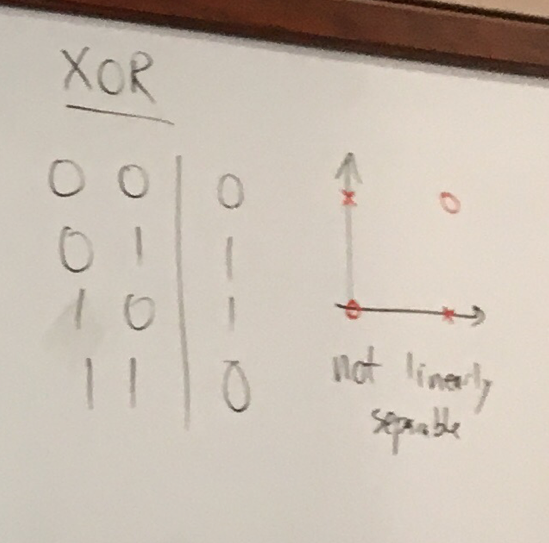 XOR
0 0 | 0
0 1 | 1
1 0 | 1
1 1 | 0
not linerly
seprable